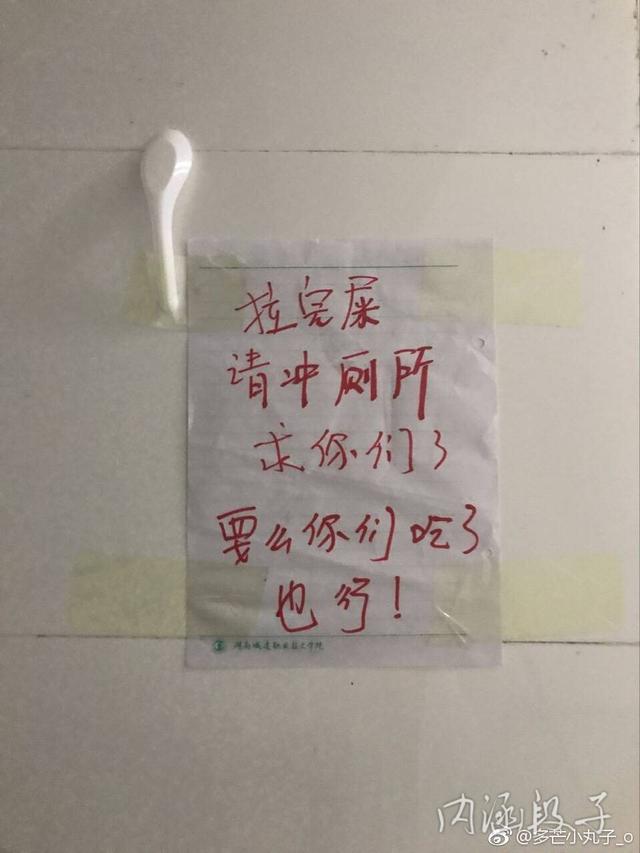 拉完屎
请冲厕所
求你们了
要么你们吃了
也行！
湖南城建职业技术学院
内涵段子
@多芒小丸子_o